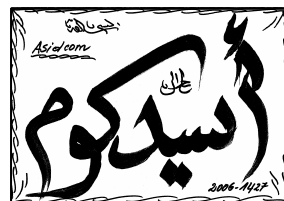 Asidcom
أسيدكوم
2006-1427